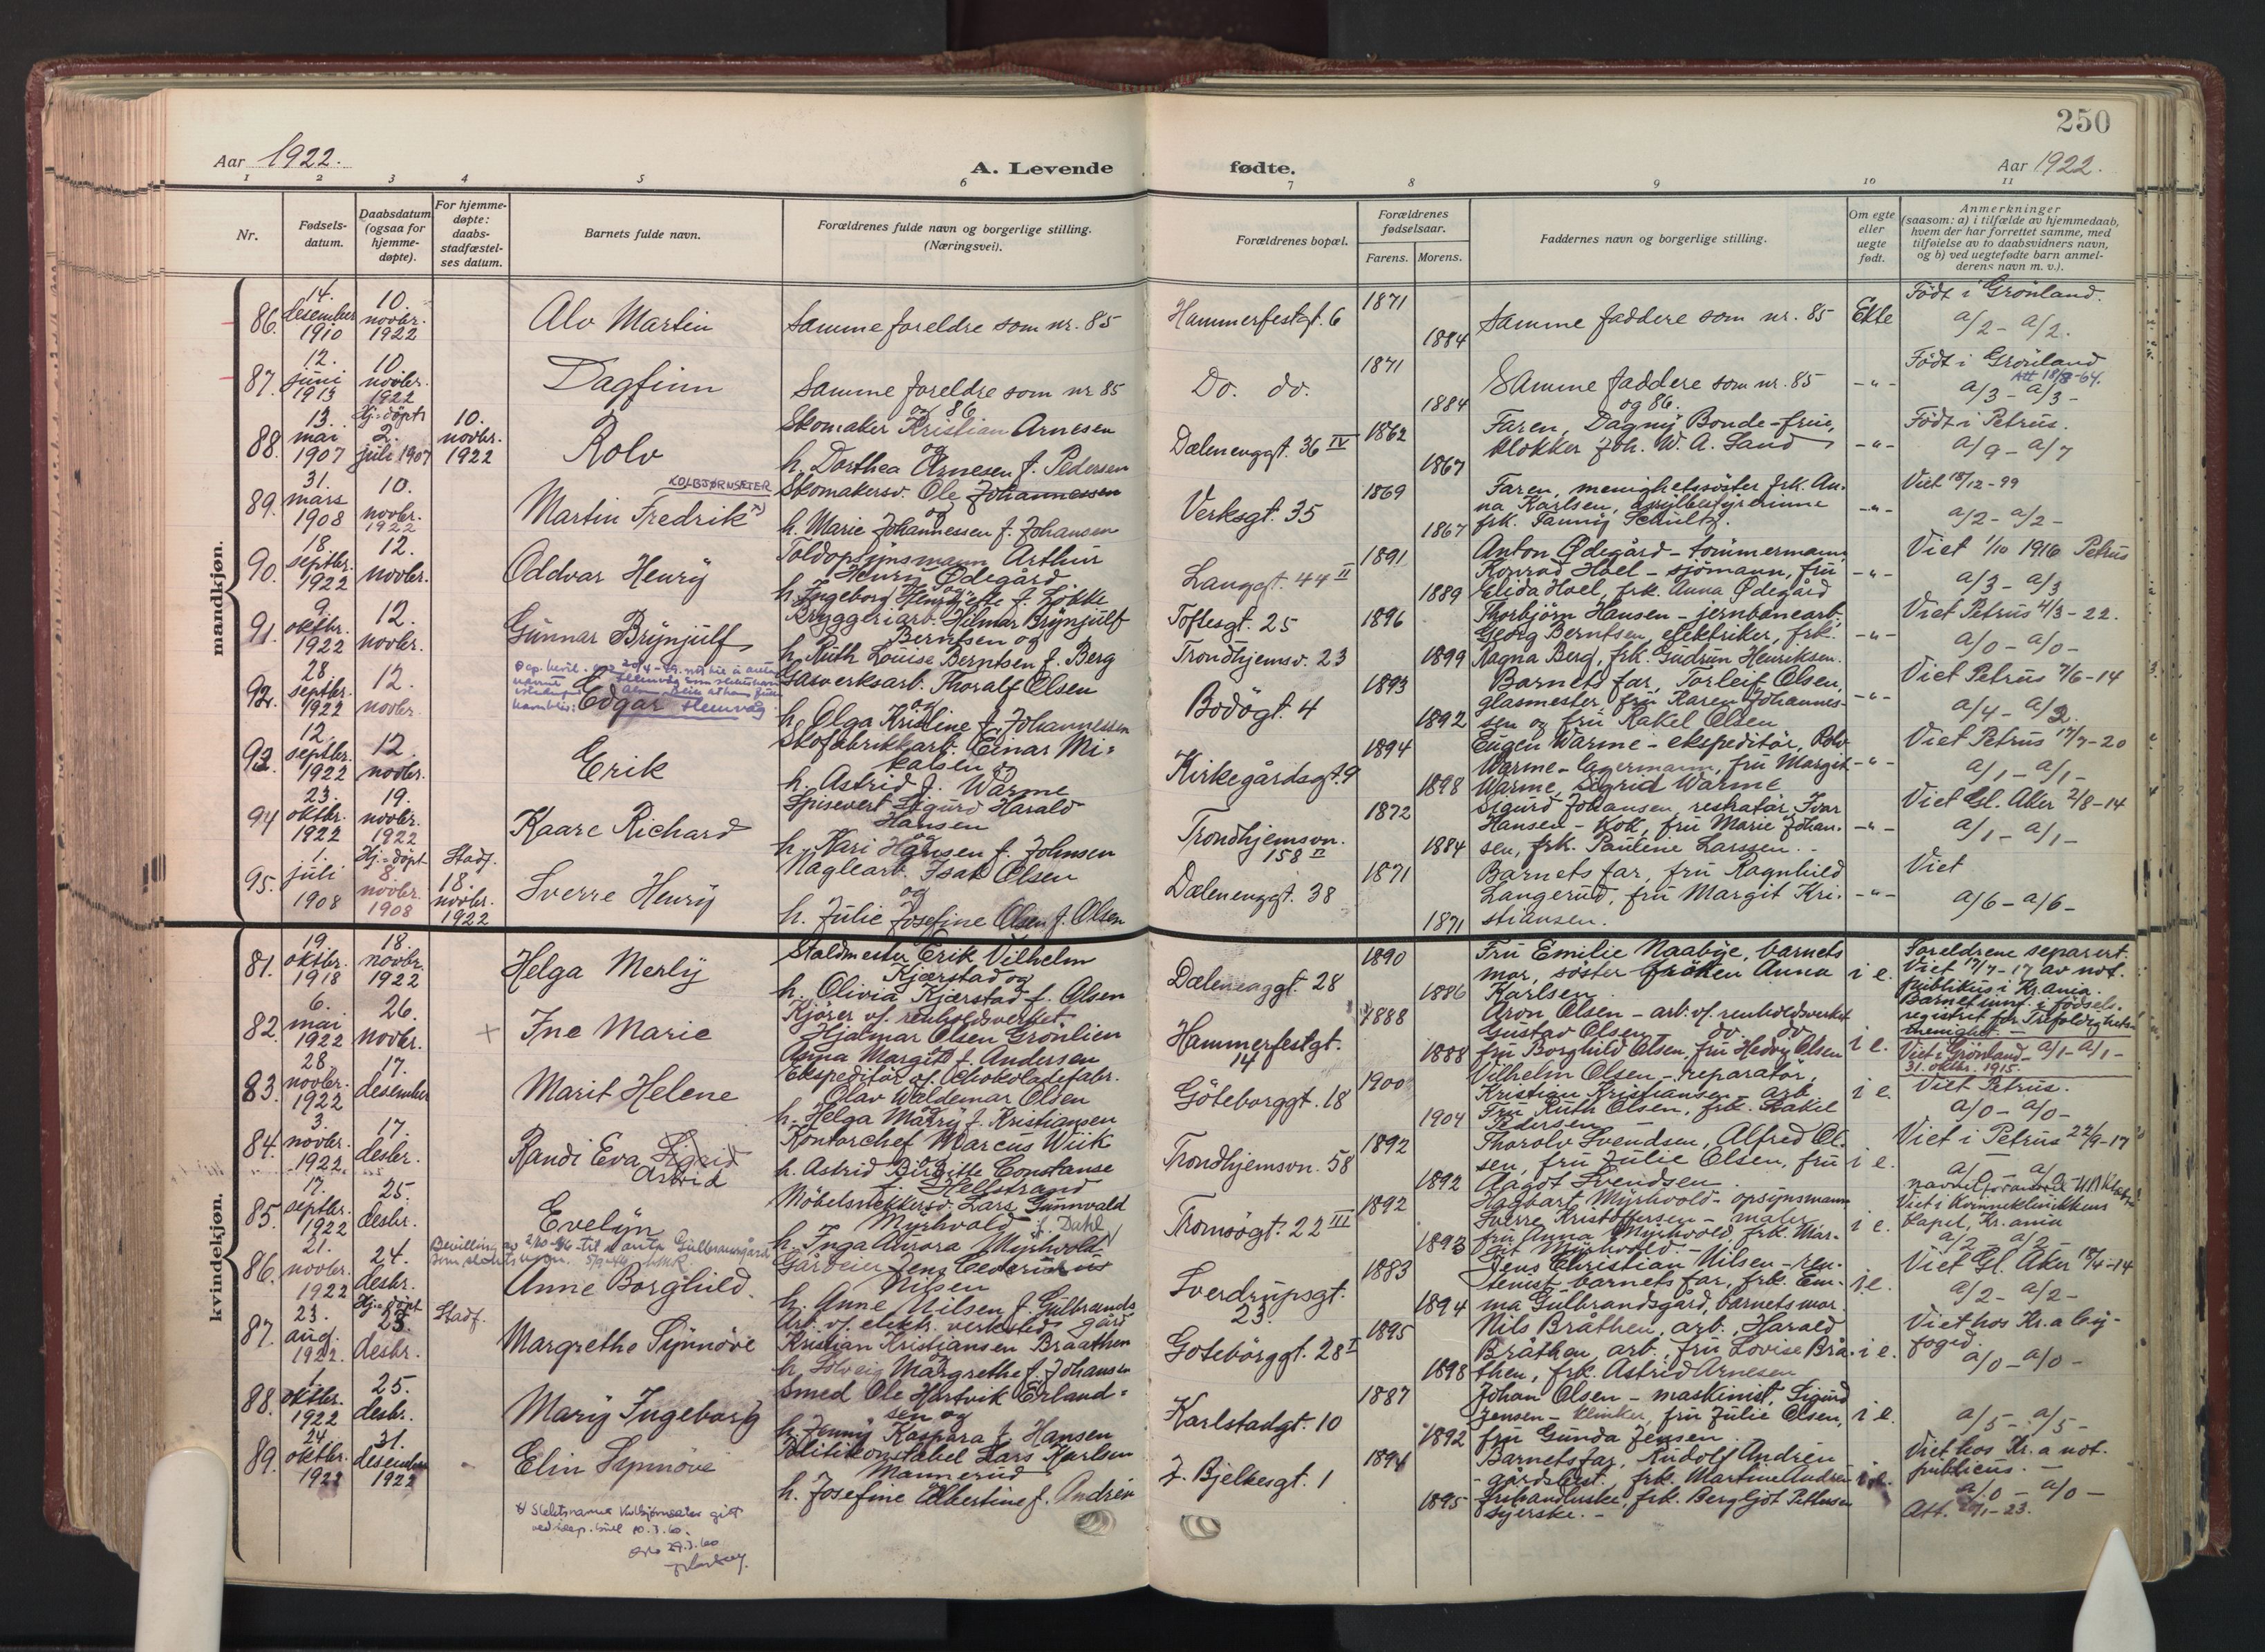 250
Aar 1922.
A. Levende fødte.
Aar 1922.
1 2 3 4 5 6 7 8 9 10 11
Nr.
Fødsels-
datum.
Daabsdatum
(ogsaa for
hjemme-
døpte).
For hjemme-
døpte:
daabs-
stadfæstel-
ses datum.
Barnets fulde navn.
Forældrenes fulde navn og borgerlige stilling.
(Næringsvei).
Forældrenes bopæl.
Forældrenes
fødselsaar.
Farens. Morens.
Faddernes navn og borgerlige stilling.
Om egte
eller
uegte
født.
Anmerkninger
(saasom: a) i tilfælde av hjemmedaab,
hvem der har forrettet samme, med
tilføielse av to daabsvidners navn,
og b) ved uegtefødte barn anmel-
derens navn m. v.).
mandkjøn.
86. 14. desember 1910
10. novbr. 1922
Alv Martin
Samme foreldre som nr. 85
Hammerfestgt. 6
1871
1884
Samme faddere som nr. 85
Ekte
Født i Grønland.
a/2 - a/2.
87. 12. juni 1913
10. novbr. 1922
Dagfinn
Samme foreldre som nr 85
og 86.
Do. do.
1871
1884
Samme faddere som nr. 85
og 86.
-"-
Født i Grønland
Att 18/8-64.
a/3 - a/3 -
88. 13. mai 1907
Hj.=døpt 2. juli 1907
10. novbr. 1922
Rolv
Skomaker Kristian Arnesen
og
h. Dorthea Arnesen f. Pedersen
Dælenenggt. 36 IV
1862
1867
Faren, Dagny Bonde - frue,
klokker Joh. W. A. Sand
-"-
Født i Petrus.
a/9 - a/7
89. 31. mars 1908
10. novbr. 1922
KOLBJØRNSETER
Martin Fredrik x)
Skomakersv. Ole Johannessen
og
h. Marie Johannessen f. Johansen
Verksgt. 35
1869
1867
Faren, menighetssøster frk. An-
na Karlsen,
frk. Fanny Schultz.
-"-
Viet 18/12-99
a/2 - a/2 -
90. 18 septbr. 1922
12. novbr.
Oddvar Henry
Toldopsynsmann Arthur
Henry Ødegård
og
h. Ingeborg Henriette f. Løkke
Langgt. 44 II
1891
1889
Anton Ødegård - tømmermann,
Konrad Hoel - sjømann, fru
Elida Hoel, frk. Anna Ødegård
-"-
Viet 1/10 1916 Petrus
a/3 - a/3
91. 9. oktbr. 1922
12. novbr.
Gunnar Brynjulf
Bryggeriarb. Hilmar Brynjulf
Berntsen og
h. Ruth Louise Berntsen f. Berg
Toftesgt. 25
Trondhjemsv. 23
1896
1899
Thorbjørn Hansen - jernbanearb.,
Georg Berntsen, elektriker, frk.
Ragna Berg, frk. Gudrun Henriksen.
-"-
Viet Petrus 4/3 - 22.
a/0 - a/0 -
92. 28 septbr. 1922
12. novbr.
Edgar
Slemvåg
Gasverksarb. Thoralf Olsen
og
h. Olga Kristine f. Johannessen
Bodøgt. 4
1893
1892
Barnets far, Torleif Olsen,
glasmester, fru Karen Johannes-
sen og fru Rakel Olsen
-"-
Viet Petrus 7/6 - 14
a/4 - a/2.
93. 12. septbr. 1922
12. novbr.
Erik
Skofabrikkarb. Einar Mi-
kalsen og
h. Astrid f. Warme
Kirkegårdsgt. 9
1894
1898
Eugen Warme - ekspeditør, Rolv
Warme - lagermann, fru Margit
Warme, Sigrid Warme
-"-
Viet Petrus 17/7 - 20
a/1 - a/1 -
94 23. oktbr. 1922
19. novbr. 1922
Kaare Richard
Spisevert Sigurd Harald
Hansen
og
h. Kari Hansen f. Johnsen
Trondhjemsvn.
158 II
1872
1884
Sigurd Johansen, restratør, Ivar
Hansen - kok, fru Marie Johan-
sen, frk. Pauline Larssen. -
-"-
Viet Gl. Aker 2/8 - 14
a/1 - a/1 -
95. 1. juli 1908
Hj.=døpt 8 novbr. 1908
Stadf. 18. novbr. 1922
Sverre Henry
Naglearb. Isak Olsen
og
h. Julie Josefine Olsen f. Olsen
Dælenenggt. 38
1871
1871
Barnets far, fru Ragnhild
Langerud, fru Margit Kri-
stiansen.
-"-
Viet
a/6 - a/6 -
kvindekjøn.
81. 19 oktbr. 1918
18. novbr. 1922
Helga Merly
Staldmester Erik Vilhelm
Kjærstad og
h. Olivia Kjærstad f. Olsen
Dælenenggt 28
1890
1886
Fru Emilie Naabye, barnets
mor, søster frøken Anna
Karlsen.
i e.
Foreldrene separert.
Viet 17/7 - 17 av not.
publikus i Kr.ania.
82. 6. mai 1922
26. novbr.
+ Ine Marie
Kjører v/ renholdsverket
Hjalmar Olsen Grønlien
og
Asma Margit f. Andersen
Hammerfestgt.
14
1888
1888
Aron Olsen - arb. v/ renholdsverket
Gustav Olsen - do. do.
fru Borghild Olsen, fru Hedvig Olsen
i e.
Barnet i fødsels-
registret for Trefoldigheds
menighet. -
Viet i Grønland - a/1 - a/1 -
31. oktbr. 1915.
83. 28 novbr. 1922
17. desember
Marit Helene
Ekspeditør v/ schokoladefabr.
Olav Waldemar Olsen
og
h. Helga Marry f. Kristiansen
Gøteborggt. 18
1900
1904
Vilhelm Olsen - reparatør,
Kristian Kristiansen - arb.
Fru Ruth Olsen, frk. Rakel
Pedersen -
i e.
Viet Petrus.
a/0 - a/0 -
84. 3. novbr. 1922
17. desbr.
Randi Eva Sigrid
Astrid
Kontorchef Marcus Wiik
og
h. Astrid Birgitte Constanse
f. Hellstrand
Trondhjemsvn. 58
1892
1892
Thorolv Svendsen, Alfred Ol-
sen, fru Julie Olsen, fru
Aagot Svendsen
i e.
Viet i Petrus 22/9 - 17
a/0 - a/0
85. 17. septbr. 1922
25. desbr.
Evelyn
Møbelsnekkersv. Lars Gunnvald
Myrhvold f. Dahl
h. Inga Aurora Myrhvold
Tromsøgt. 22 III
1892
1893
Dagbart Myrhvold - opsynsmann
Sverre Kristoffersen - maler
fru Anna Myrhvold, frk. Mar-
git Myrhvold. -
i e.
Viet i Kvinneklinikkens
kapel, Kr.ania
a/2 - a/2 -
86. 21. novbr. 1922
24. desbr.
Anne Borghild.
Gårdeier Jens
Nilsen
h. Anne Nilsen f. Gulbrands
gård
Sverdrupsgt.
23.
1883
1894
Jens Christian Nilsen - ren-
tenist, barnets far, frk. Em-
ma Gulbrandsgård, barnets mor.
i e.
Viet Gl. Aker 18/4 - 14
a/2 - a/2 -
87. 23. aug. 1922.
Hj.=døpt 25. desbr.
Stadf.
Margrethe Synnøve
Arb. v/ elektr. verksted
Kristian Kristiansen Braathen
og
h. Solveig Margrethe f. Johansen
Gøteborggt. 28 I
1895
1898
Nils Bråthen, arb., Harald
Bråthen, arb., fru Lovise Brå-
then, frk. Astrid Arnesen
i e.
Viet hos Kr.a by-
foged.
a/0 - a/0 -
88. 1. oktbr. 1922
25. desbr.
Mary Ingeborg
Smed Ole Hartvik Erland-
sen og
h. Jenny Kaspara f. Hansen
Karlstadgt. 10
1887
1892
Johan Olsen - maskinist, Sigurd
Jensen - klinker, fru Julie Olsen,
fru Gunda Jensen.
i e.
a/5 - a/5 -
89. 24. oktbr. 1922
31. desember 1922
Elin Synnøve
Politikonstabel Lars Karlsen
Mannerud
h. Josefine Albertine f. Andrén
J. Bjelkesgt. 1
1894
1895
Barnets far, Rudolf Andrén
- gårdsbest., frk. Martine Andrén
frk. Bergljot Pettersen
syerske. -
i e.
Viet hos Kr.a not.
publicus. -
a/0 - a/0 -
Att. 2/1 - 23.
x) Slektsnavnet Kolbjørnseter gitt
ved dep. bevill 10.3.60.
Oslo 29.3.60